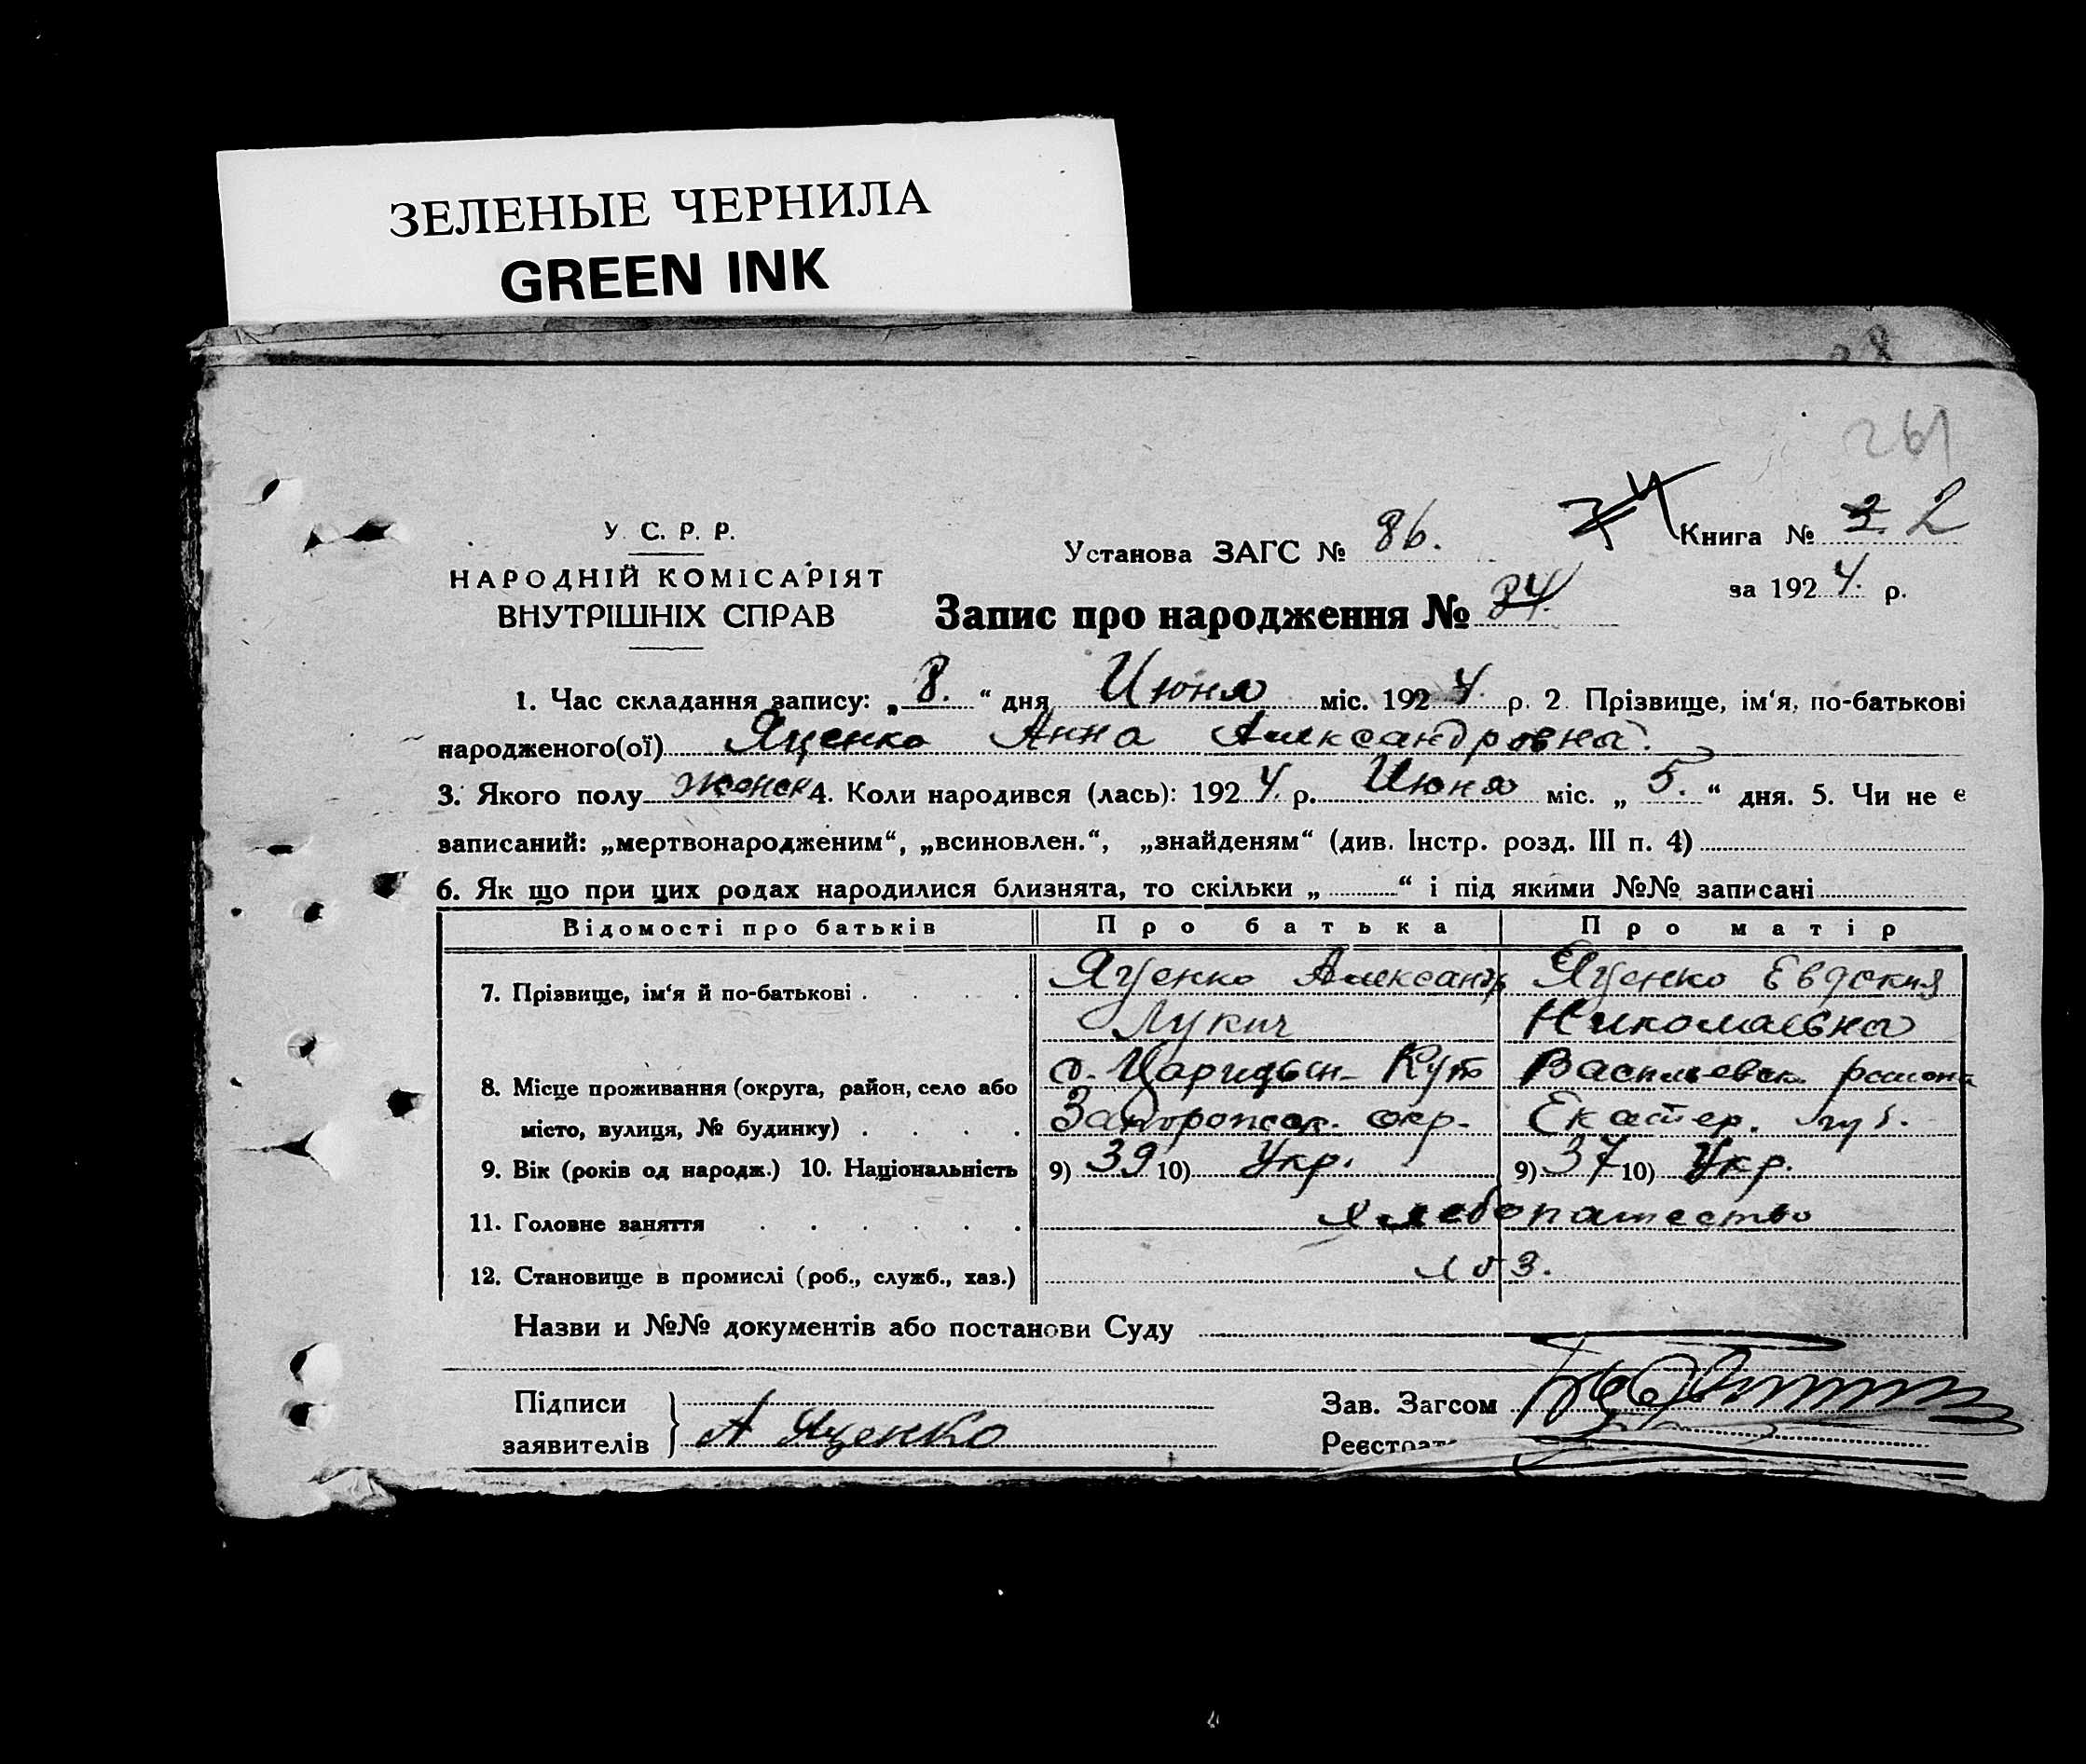 ЗЕЛЕНЫЕ ЧЕРНИЛА
GREEN INK
261
У. С. Р. Р.
НАРОДНІЙ КОМІСАРІЯТ
ВНУТРІШНІХ СПРАВ
Установа ЗАГС № 86.
Книга № 3 2
за 1924. р.
Запис про народження № 84.
1. Час складання запису: „8.“ дня Июня міс. 1924. р. 2. Прізвище, ім‘я, по-батькові
народженого(ої) Яценко Анна Александровна.
3. Якого полу женск 4. Коли народився (лась): 1924. р. Июня міс. „5.“ дня. 5. Чи не є
записаний: „мертвонародженим“, „всиновлен.“, „знайденям“ (див. Інстр. розд. III п. 4)
6. Як що при цих родах народилися близнята, то скільки „ “ і під якими №№ записані
Відомості про батьків Про батька Про матір
7. Прізвище, ім‘я й по-батькові . . . . Яценко Александр Яценко Евдокия
Лукич Николаевна
8. Місце проживання (округа, район, село або с. Царицын-Кут Васильевск. района
місто, вулиця, № будинку) . . . . Запорожск. окр. Екатер. губ.
9. Вік (років од народж.) 10. Національність 9) 39 10) Укр. 9) 37 10) Укр.
11. Головне заняття . . . . . . хлебопашество
12. Становище в промислі (роб., служб., хаз.) хоз.
Назви и №№ документів або постанови Суду
Підписи
заявителів } А Яценко
Зав. Загсом